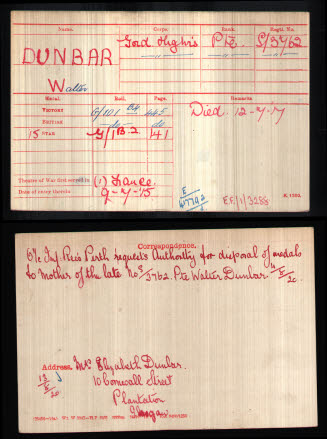 Name. Corps. Rank. Regtl. No.
DUNBAR Gord Highrs Pte. S/3762
Walter
Medal. Roll. Page. Remarks.
VICTORY G/101 B4 445 Died. 12-7-17
BRITISH do do
15 STAR G/1 B.2 141
Theatre of War first served in (1) France.
Date of entry therein 9-7-15
E.F/1/3288
K. 1380.
Correspondence.
O/c Inf Recs Perth requests Authority for disposal of medals
to Mother of the late No S/3762. Pte Walter Dunbar.
Address. Mrs Elizabeth Dunbar.
10 Cornwall Street
Plantation
Glasgow